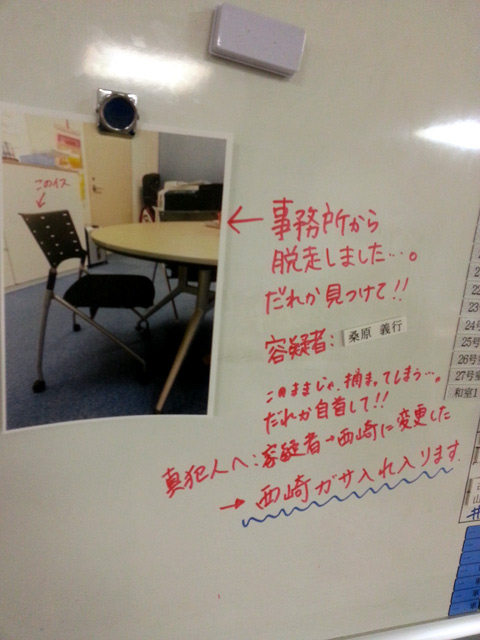 このイス
← 事務所から
脱走しました…。
だれか見つけて!!
容疑者: 桑原 義行
このままじゃ、捕まってしまう…。
だれか自首して!!
真犯人へ:容疑者→西崎に変更した
→ 西崎ガサ入れ入ります
24号
25号
26号室
27号室
和室1